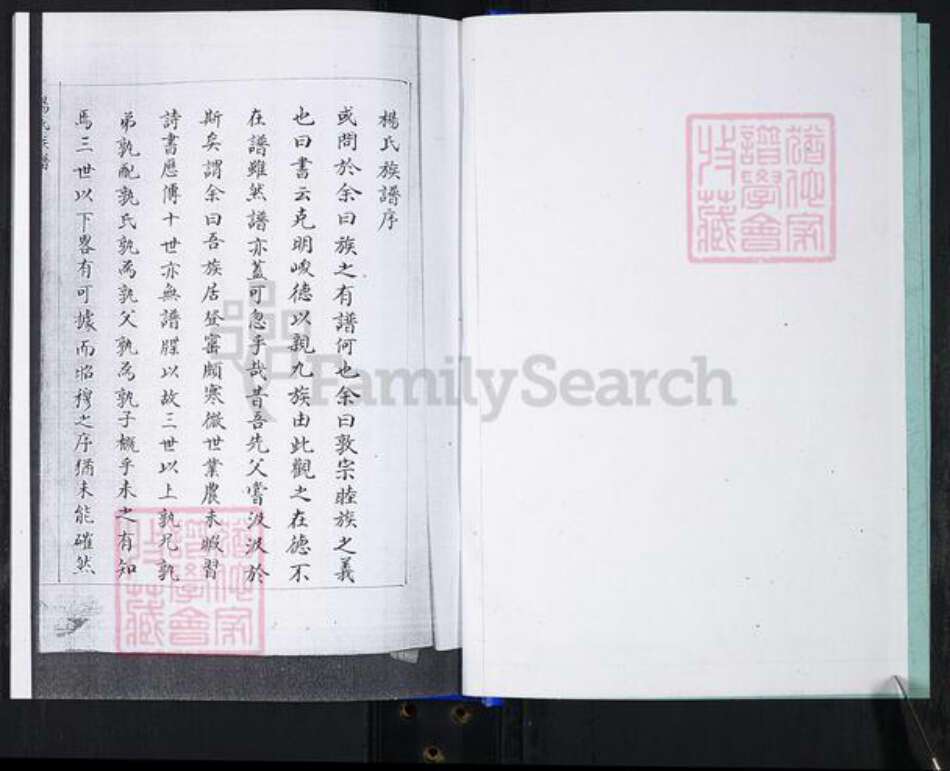 楊氏族譜序
或問於余曰族之有譜何也余曰敦宗睦族之義
也曰書云克明峻德以親九族由此觀之在德不
在譜雖然譜亦蓋可忽乎哉昔吾先父嘗汲汲於
斯矣謂余曰吾族居登窩頗寒微世業農未暇習
詩書歷傳十世亦無譜牒以故三世以上孰兄孰
弟孰配孰氏孰為孰父孰為孰子概乎未之有知
焉三世以下畧有可據而昭穆之序猶未能確然
楊氏族譜
FamilySearch
譜學會
收藏
譜學會
收藏